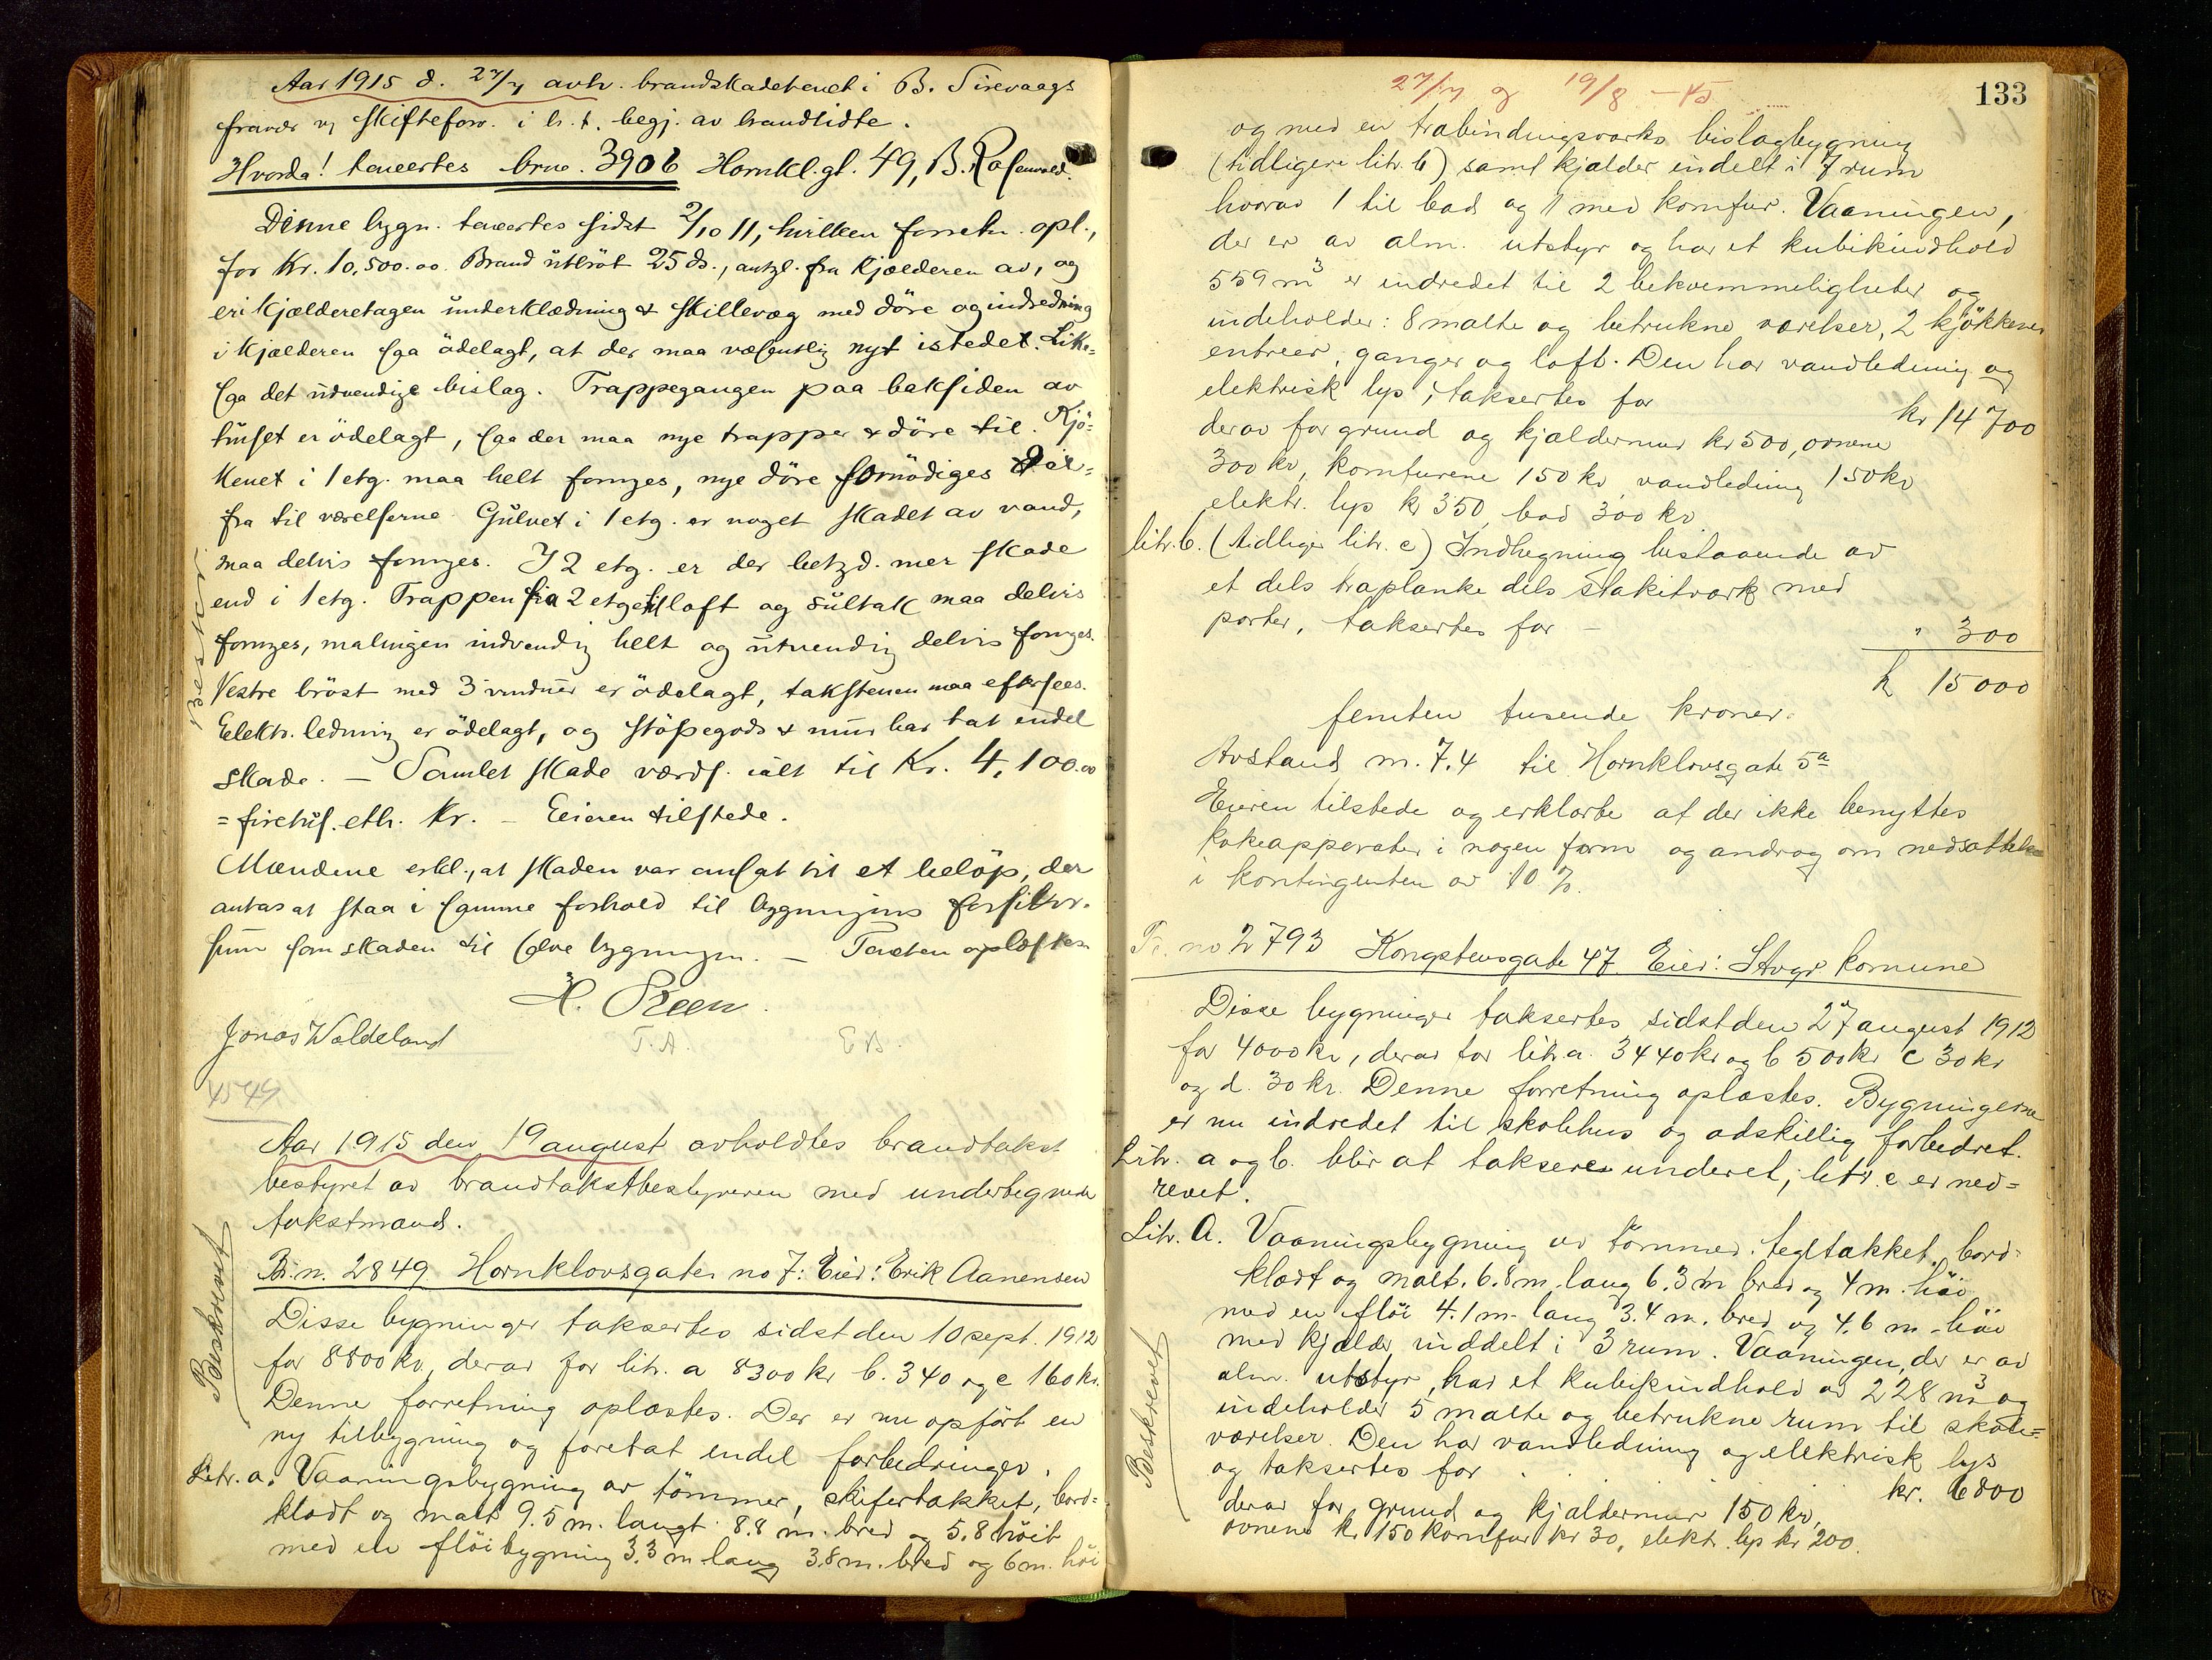 Aar 1915 d. 27/7 avh. brandskadetaxt i B. Sirevaags
fravær v/ Skiftefow. i h. t. begj. av brandlidte.
Hvorda! taxertes brno. 3906 Hornkl.gt. 49, B. Rosenvold.
Dinne bygn. taxertes sidst 2/10 11, hvilken forretn. opl.,
for Kr. 10,500.00. Brand utbröt 25 ds., antgl. fra Kjælderen av, og
er i Kjælderetagen underklædning & skillevæg med döre og indredning
i Kjælderen saa ödelagt, at der maa væsentlig nyt istedet. Like-
saa det udvendige bislag. Trappegangen paa baksiden av
huset er ödelagt, saa der maa nye trapper & döre til. Kjö-
kenet i 1 etg. maa helt fornyes, nye döre fornödiges der-
fra til værelserne. Gulvet i 1 etg. er noget skadet av vand,
maa delvis fornyes. I 2 etg. er der betyd. mer skade
end i 1 etg. Trappen fra 2 etg. til loft og sultak maa delvis
fornyes, malingen indvendig helt og utvendig delvis fornyes.
Vestre bröst med 3 vinduer er ödelagt, takstenen maa eftersees.
Elektr. ledning er ödelagt, og stöpegods & mur har tat endel
skade. — Samlet skade værds. ialt til Kr. 4,100.00
= firetus. eth. Kr. — Eieren tilstede.
Mændene erkl., at skaden var ansat til et belöp, der
antas at staa i samme forhold til bygningens forsikr.
sum som skaden til selve bygningen. — Taxten oplæstes.
H. Steen
Jonas Waldeland T.A. E B.
4549
Aar 1915 den 19 august avholdtes brandtakst
bestyret av brandtakstbestyreren med undertegnede
takstmænd.
Br. n. 2849 Hornklovsgaten no 7: Eier: Erik Aanensen
Beskrevet
Disse bygninger taksertes sidst den 10 sept. 1912
for 8800 kr, derav for litr. a 8300 kr b. 340 og c 160 kr.
Denne forretning oplæstes. Der er nu opfört en
ny tilbygning og foretat endel forbedringer.
Litr. a. Vaaningsbygning av tömmer, skifertakket, bord-
klædt og malt 9.5 m. langt 8.8 m. bred og 5.8 höit
med en flöibygning 3.3 m lang 3.8 m. bred og 6 m. höi
27/7 og 19/8 - 15
133
og med en træbindingsværks bislagbygning
(tidligere litr. b) samt kjælder indelt i 7 rum
hvorav 1 til bad og 1 med komfur. Vaaningen,
der er av alm. utstyr og har et kubikindhold
559 m3 er indredet til 2 bekvemmeligheter og
indeholder: 8 malte og betrukne værelser, 2 kjökkener
entreer, ganger og loft. Den har vandledning og
elektrisk lys; taksertes for kr 14700
derav for grund og kjældermur kr 500, ovnene
300 kr, komfurene 150 kr, vandledning 150 kr
elektr. lys kr 350, bad 300 kr
litr. b. (tidliger litr. c) Indhegning bestaaende av
et dels træplanke dels stakitværk med
porter, taksertes for — " 300
kr 15000
femten tusende kroner.
Avstand m. 7.4 til Hornklovsgate 5a
Eieren tilstede og erklærte at der ikke benyttes
kokeapparater i nogen form og androg om nedsættelse
i kontingenten av 10 %.
Br. no 2793 Kongstensgate 47 Eier: Stvgr. komune
Disse bygninger taksertes sidst den 27 august 1912
for 4000 kr, derav for litr. a. 3440 kr og b 500 kr c 30 kr
og d. 30 kr. Denne forretning oplæstes. Bygningerne
er nu indredet til skolehus og adskillig forbedret.
Litr. a og b. blir at taksere underet; litr. c er ned-
revet.
Litr. A. Vaaningsbygning av tömmer. tegltakket, bord-
klædt og malt. 6.8 m. lang 6.3 m bred og 4 m. höi
med en flöi 4.1 m. lang 3.4 m. bred og 4.6 m. höi
med kjælder inddelt i 3 rum. Vaaningen, der er av
alm. utstyr, har et kubikindhold av 228 m3 og
indeholder 5 malte og betrukne rum til skole-
værelser. Den har vandledning og elektrisk lys
og taksertes for . . kr. 6800
Beskrevet
derav for grund og kjældermur 150 kr,
ovnene kr 150 komfur kr 30, elekt. lys kr 200.